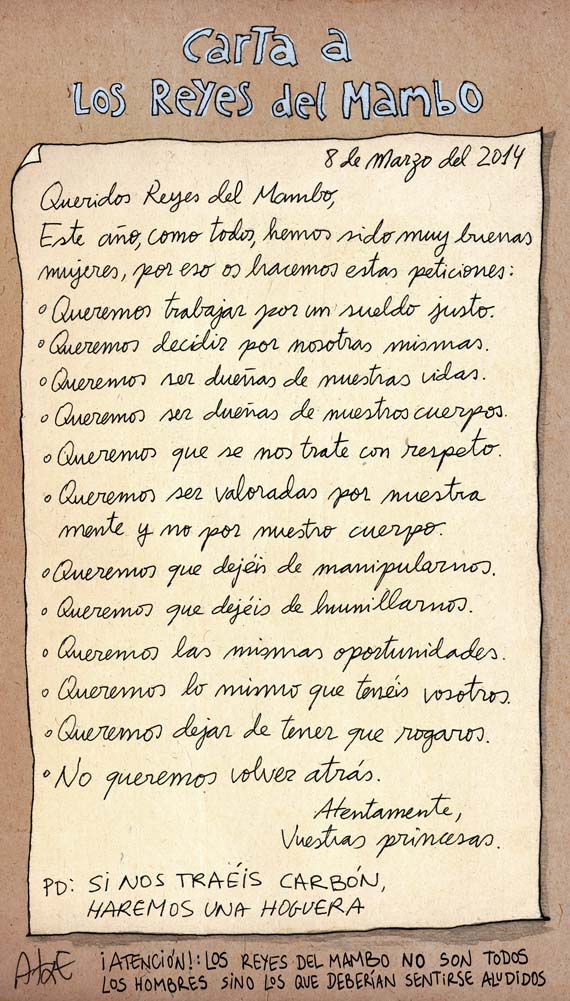 Carta a
Los Reyes del Mambo
8 de Marzo del 2014
Queridos Reyes del Mambo,
Este año, como todos, hemos sido muy buenas
mujeres, por eso os hacemos estas peticiones:
° Queremos trabajar por un sueldo justo.
° Queremos decidir por nosotras mismas.
° Queremos ser dueñas de nuestras vidas.
° Queremos ser dueñas de nuestros cuerpos.
° Queremos que se nos trate con respeto.
° Queremos ser valoradas por nuestra
mente y no por nuestro cuerpo.
° Queremos que dejéis de manipularnos.
° Queremos que dejéis de humillarnos.
° Queremos las mismas oportunidades.
° Queremos lo mismo que tenéis vosotros.
° Queremos dejar de tener que rogaros.
° No queremos volver atrás.
Atentamente,
Vuestras princesas.
PD: SI NOS TRAÉIS CARBÓN,
HAREMOS UNA HOGUERA
¡ATENCIÓN!: LOS REYES DEL MAMBO NO SON TODOS
LOS HOMBRES SINO LOS QUE DEBERÍAN SENTIRSE ALUDIDOS